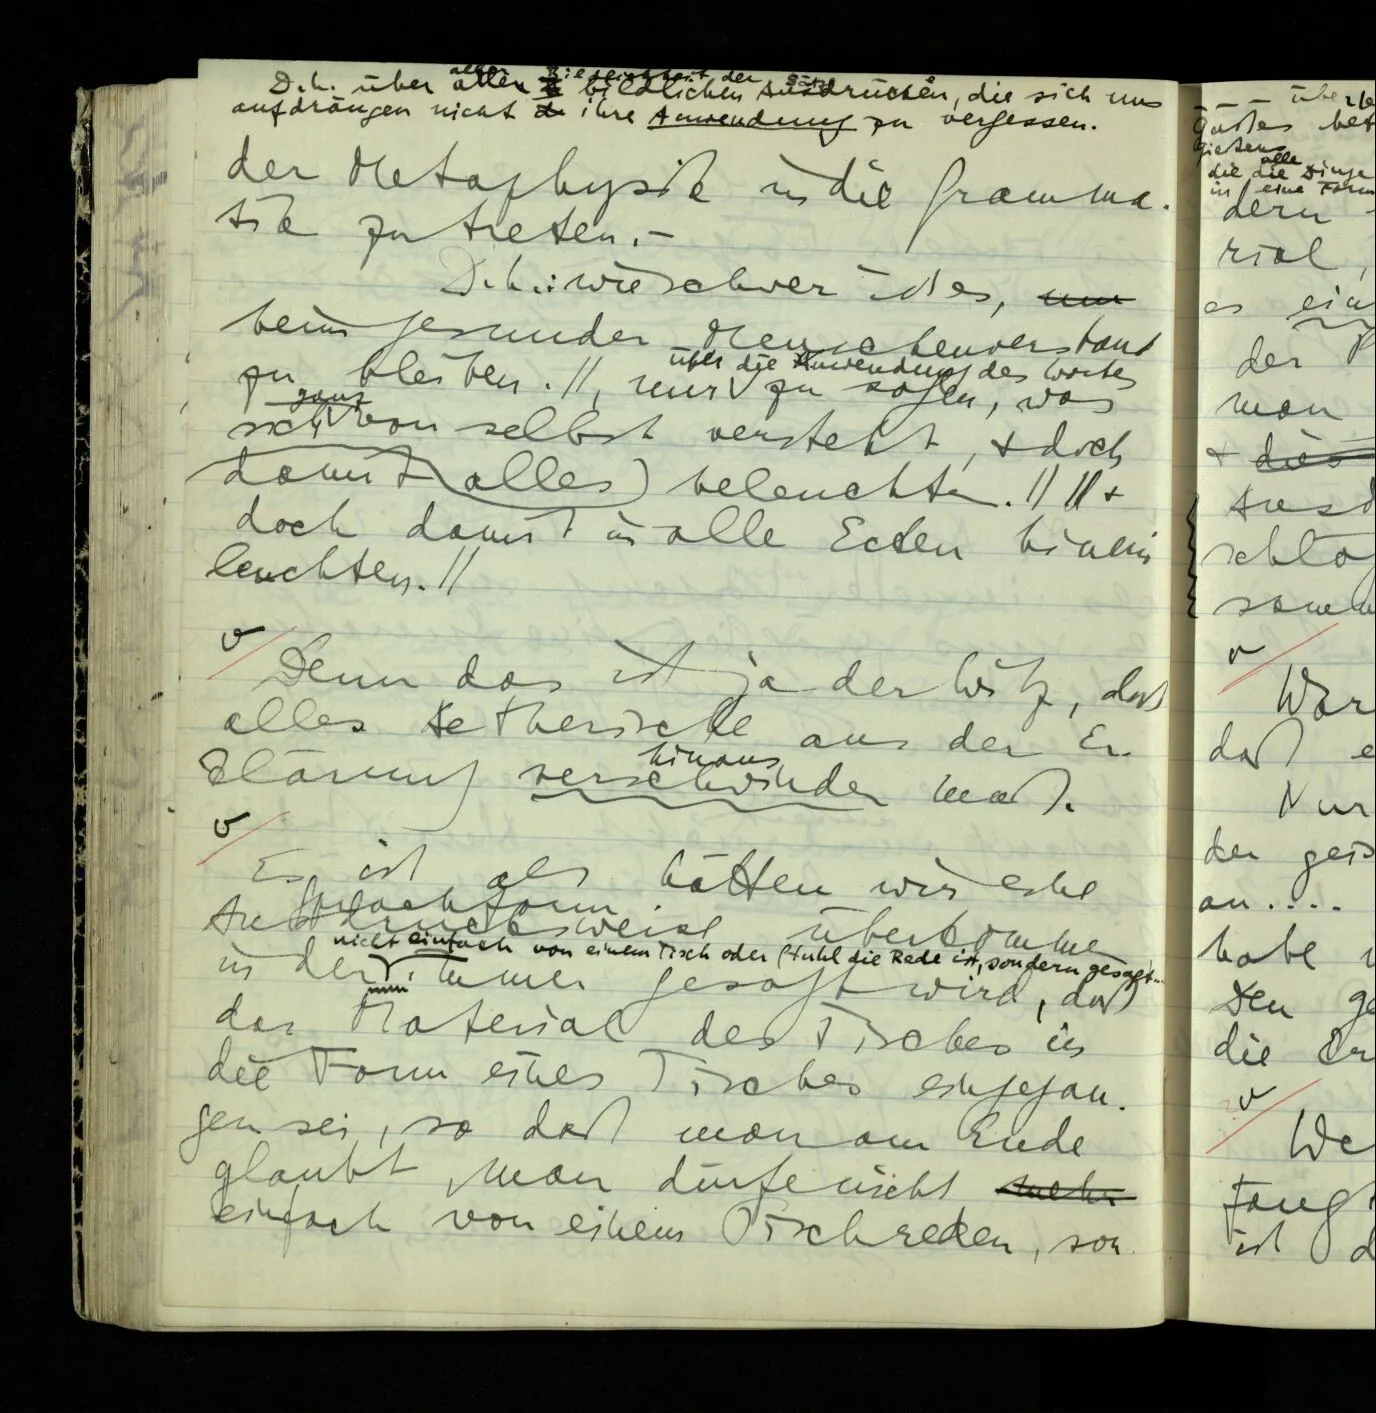 D.h. über allen aller Bildlichkeit der bildlichen Ausdrücken, die sich uns
aufdrängen nicht ihre Anwendung zu vergessen.
der Metaphysik in die Gramma-
tik zu treten.–
D.h.: wie schwer ist es, nur
beim gesunden Menschenverstand
über die Anwendung des Wortes
zu bleiben. //, nur zu sagen, was
ganz
sich von selbst versteht, & doch
damit alles beleuchten. // // &
doch damit in alle Ecken hinein
leuchten. //
Denn das ist ja der Witz, daß
alles Aetherische aus der Er-
hinaus
klärung verschwinden muß.
Es ist als hätten wir eine
Sprachform
Ausdrucksweise überkommen
nicht einfach von einem Tisch oder Stuhl die Rede ist, sondern gesagt...
in der immer gesagt wird, daß
nun
das Material des Tisches in
die Form eines Tisches eingegan-
gen sei, so daß man am Ende
glaubt, man dürfe nicht mehr
einfach von einem Tisch reden, son
alle
die die Dinge
in eine Form
dern
rial,
es
der
man
& dies
v
War
daß
Nur
der
an....
habe
Den
die
v
ist